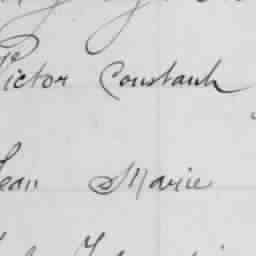 Victor Constant
Jean Marie